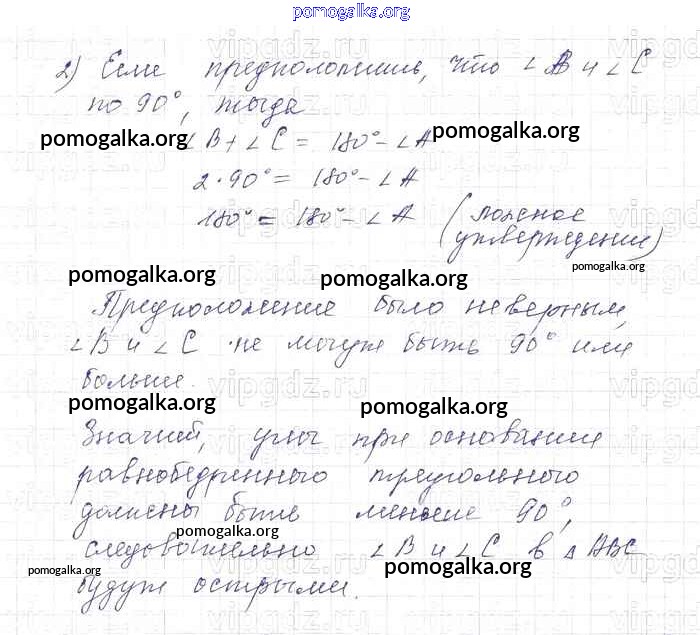 pomogalka.org
2) Если предположить, что ∠B и ∠C
по 90°, тогда
pomogalka.org
∠B + ∠C = 180° - ∠A
pomogalka.org
2·90° = 180° - ∠A
180° = 180° - ∠A (ложное
утверждение)
pomogalka.org
pomogalka.org
pomogalka.org
Предположение было неверным,
∠B и ∠C не могут быть 90° или
больше.
pomogalka.org
pomogalka.org
Значит, углы при основании
равнобедренного треугольного
должены быть меньше 90°,
pomogalka.org
следовательно ∠B и ∠C в △ABC
pomogalka.org
pomogalka.org
будут острыми.